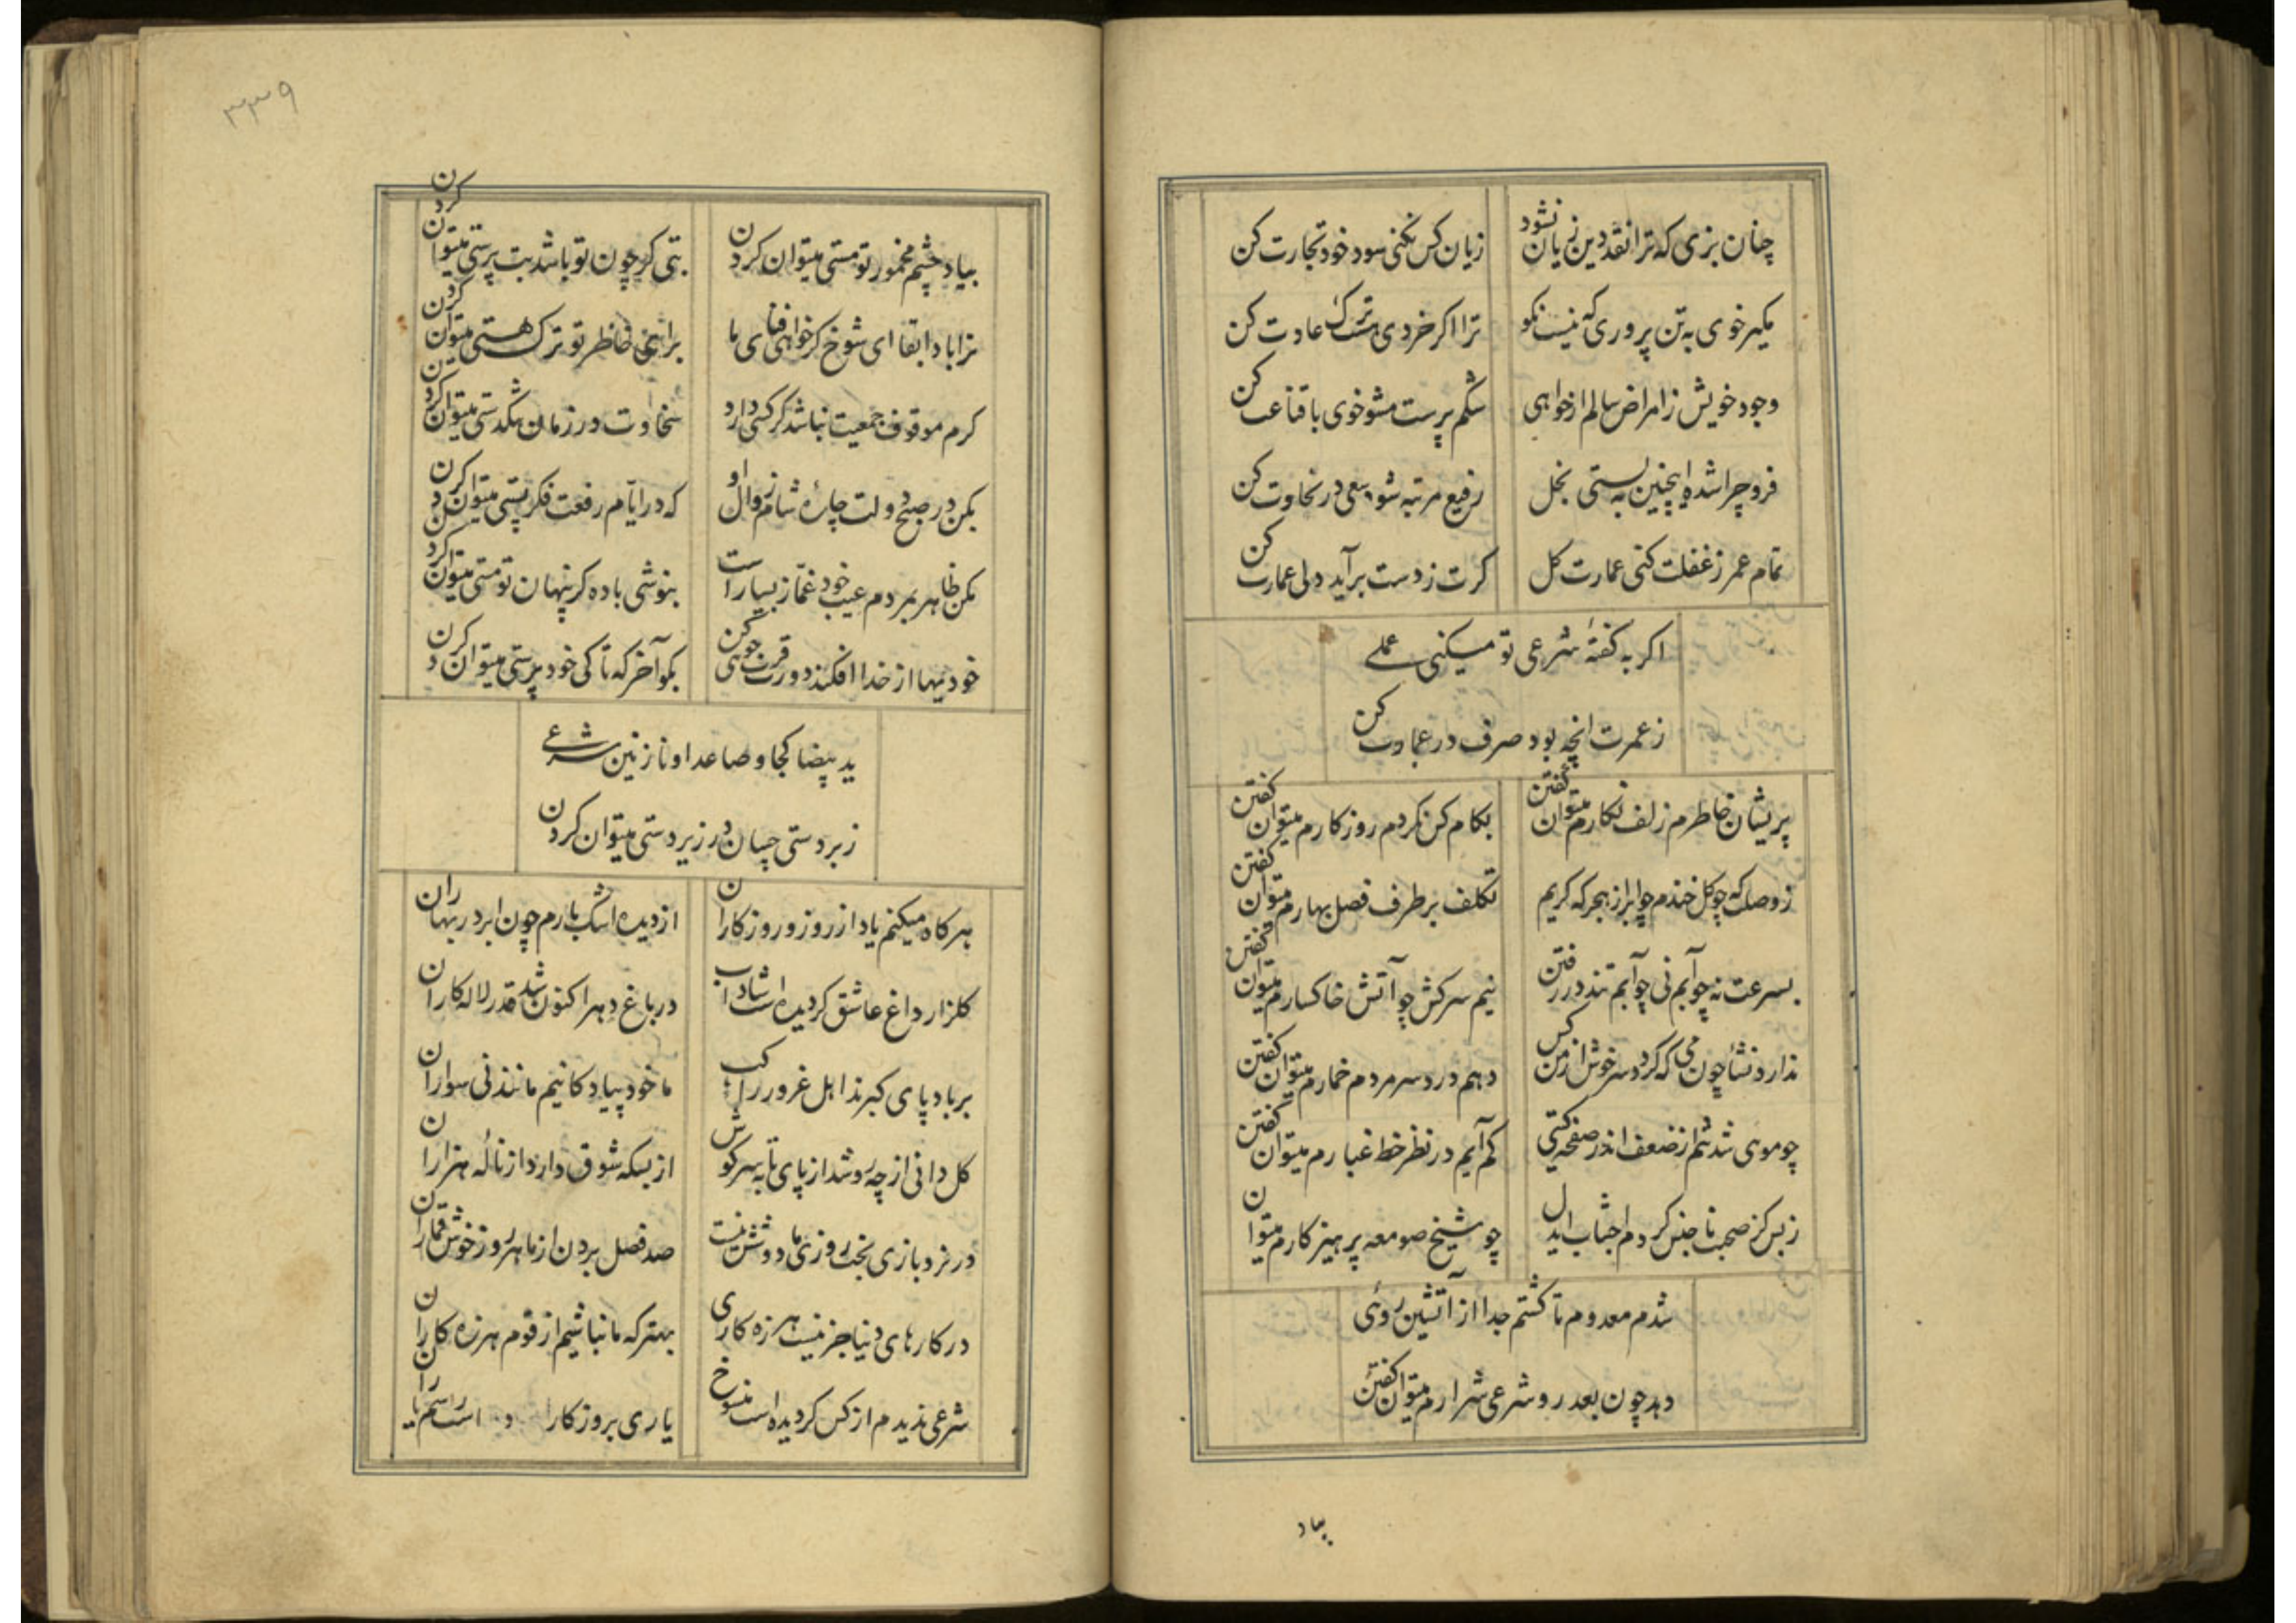 چنان بزی که ترا نقد دین زیان نشود
زیان کس نکنی سود خود تجارت کن
مکیر خوی به تن پروری که نیست نکو
ترا اکر خردی هست ترک عادت کن
وجود خویش ز امراض سالم ار خواهی
شکم پرست مشو خوی با قناعت کن
فرو چرا شدهٔ اینچنین به پستی بخل
رفیع مرتبه شو سعی در سخاوت کن
تمام عمر ز غفلت کنی عمارت کل
کرت ز دست برآید دلی عمارت کن
اکر به کفتهٔ شرعی تو میکنی عملے
ز عمرت انچه بود صرف در عبادت کن
پریشان خاطرم زلف نکارم میتوان کفتن
بکام کس نکردم روزکارم میتوان کفتن
ز وصلت که چو کل خندم چو ابر از هجر که کریم
تکلف بر طرف فصل بهارم میتوان کفتن
بسرعت نه چو آبم نی چو آبم تند در رفتن
نیم سرکش چو آتش خاکسارم میتوان کفتن
ندارد نشأ چون می که کردد سر خوش از من کس
دهم درد سر مردم خمارم میتوان کفتن
چو موی شد تنم از ضعف اندر صفحهٔ کیتی
کم آیم در نظر خط غبارم میتوان کفتن
ز بس کز صحبت نا جنس کردم اجتناب ایدل
چو شیخ صومعه پرهیزکارم میتوان
شدم معدوم تا کشتم جدا از آتشین روئی
دهد چون بعد رو شرعی شرارم میتوان کفتن
بیاد
۳۳۹
بیاد چشم مخمور تو مستی میتوان کردن
بتی کر چون تو باشد بت پرستی میتوان کردن
ترا بادا بقا ای شوخ کر خواهی فنای ما
برای خاطر تو ترک هستی میتوان کردن
کرم موقوف جمعیت نباشد کر کسی دارد
سخاوت در زمان تنکدستی میتوان کردن
بکن در صبح دولت چارهٔ شام زوال او
که در ایّام رفعت فکر پستی میتوان کردن
مکن ظاهر بمردم عیب خود غمّاز بسیار است
بنوشی باده کر پنهان تو مستی میتوان کردن
خودیها از خدا افکند دورت قرب جوئی کن
بکو آخر که تا کی خود پرستی میتوان کردن
ید بیضا کجا و صاعد او نازنین شرعے
زبر دستی چسان در زیر دستی میتوان کردن
هر کاه میکنم یاد از روز و روزکاران
از دیده اشک بارم چون ابر در بهاران
کلزار داغ عاشق کردیده است شاداب
در باغ دهر اکنون شد قدر لاله کاران
بر باد پای کبرند اهل غرور راکب
ما خود پیادکانیم مانند نی سواران
کل دانی از چه رو شد از پای تا بسر کوش
از بسکه شوق دارد از نالهٔ هزاران
در نرد بازی بخت روزی ما دو شش نیست
صد فصل بردن از ما هر روز خوش قماران
در کارهای دنیا جز نیست هرزه کاری
بهتر که ما نباشیم از قوم هرزه کاران
شرعی ندیدم از کس کردیده است منسوخ
یاری بروزکار است رسم یاران